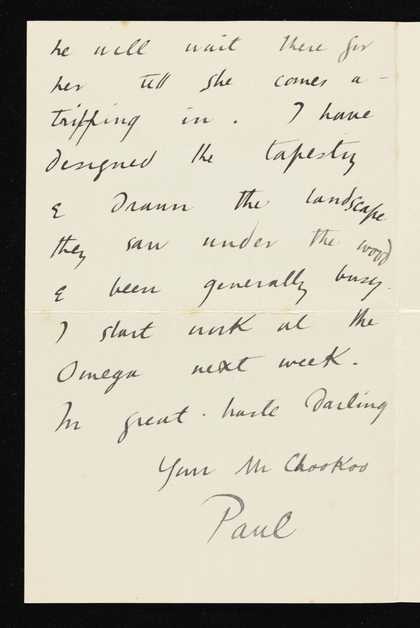 he will wait there for
her till she comes a-
tripping in. I have
designed the tapestry
& drawn the landscape
they saw under the wood
& been generally busy.
I start work at the
Omega next week.
In great haste Darling
Your Mr ChooKoo
Paul